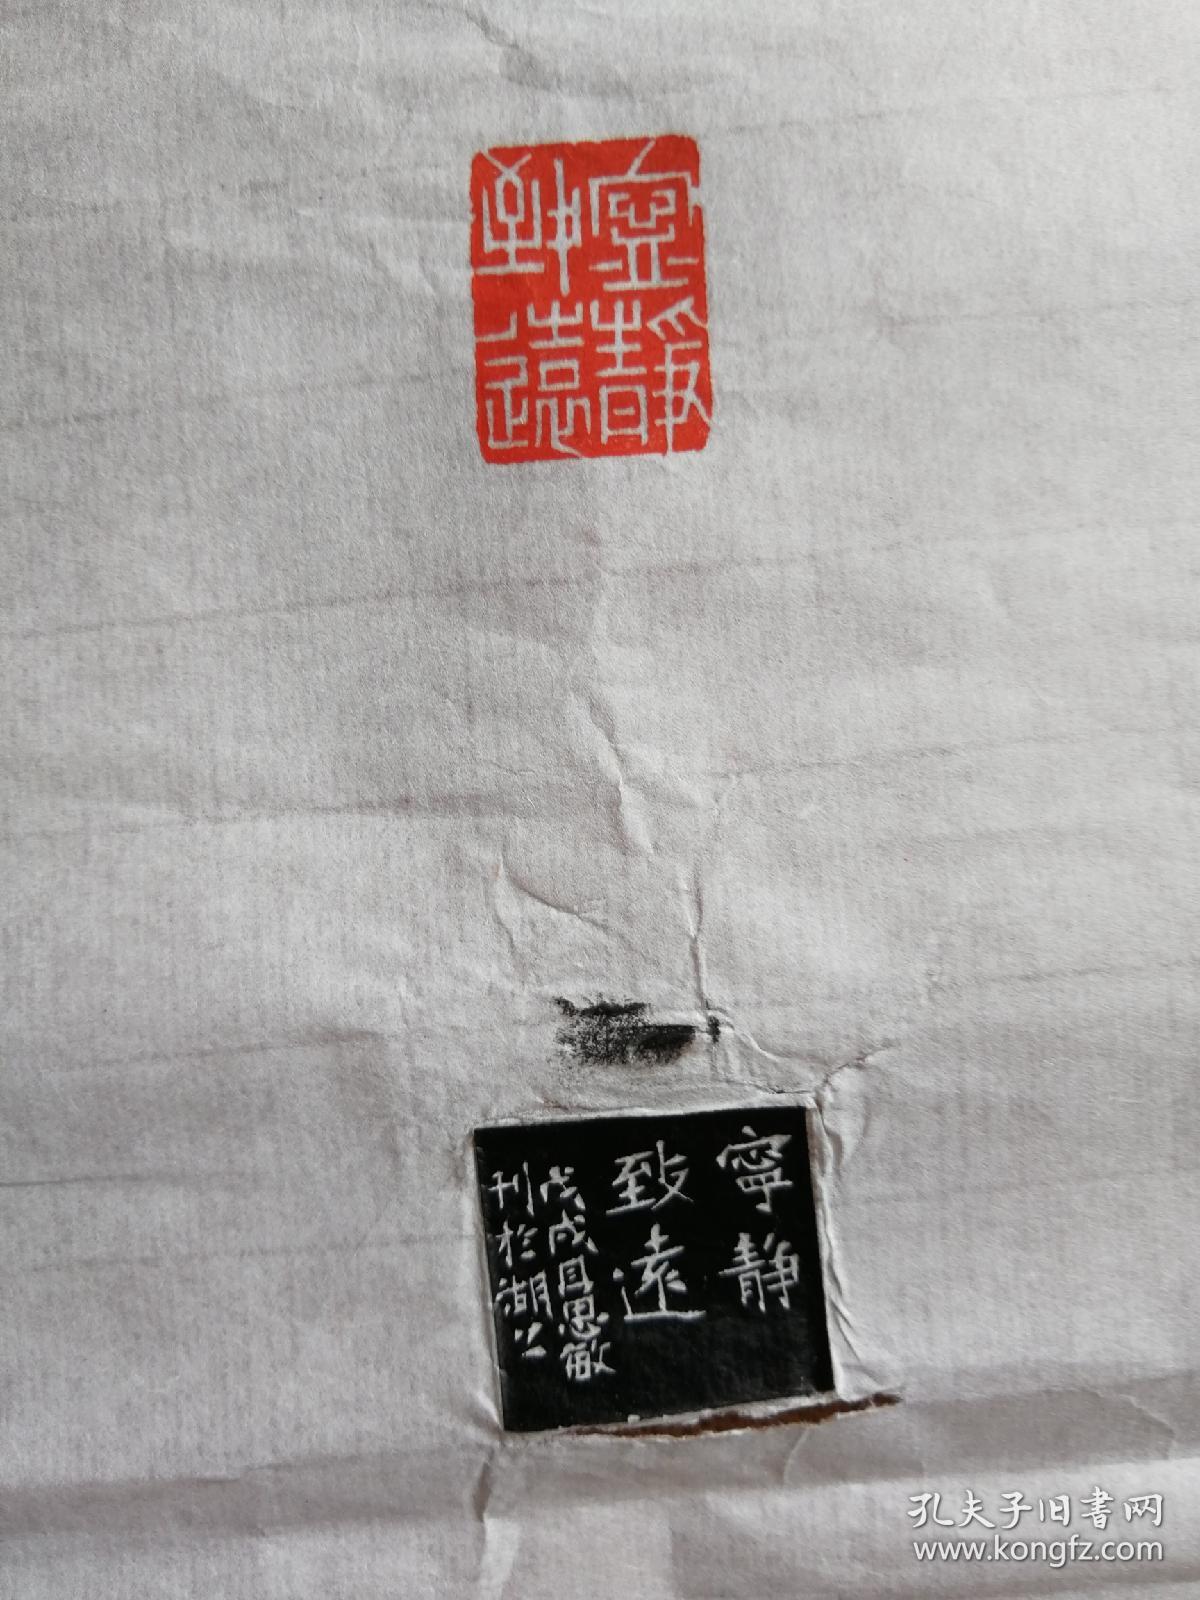 寧靜
致遠
寧静
致遠
戊戌目思徹
刊於湖上
孔夫子旧書网
www.kongfz.com